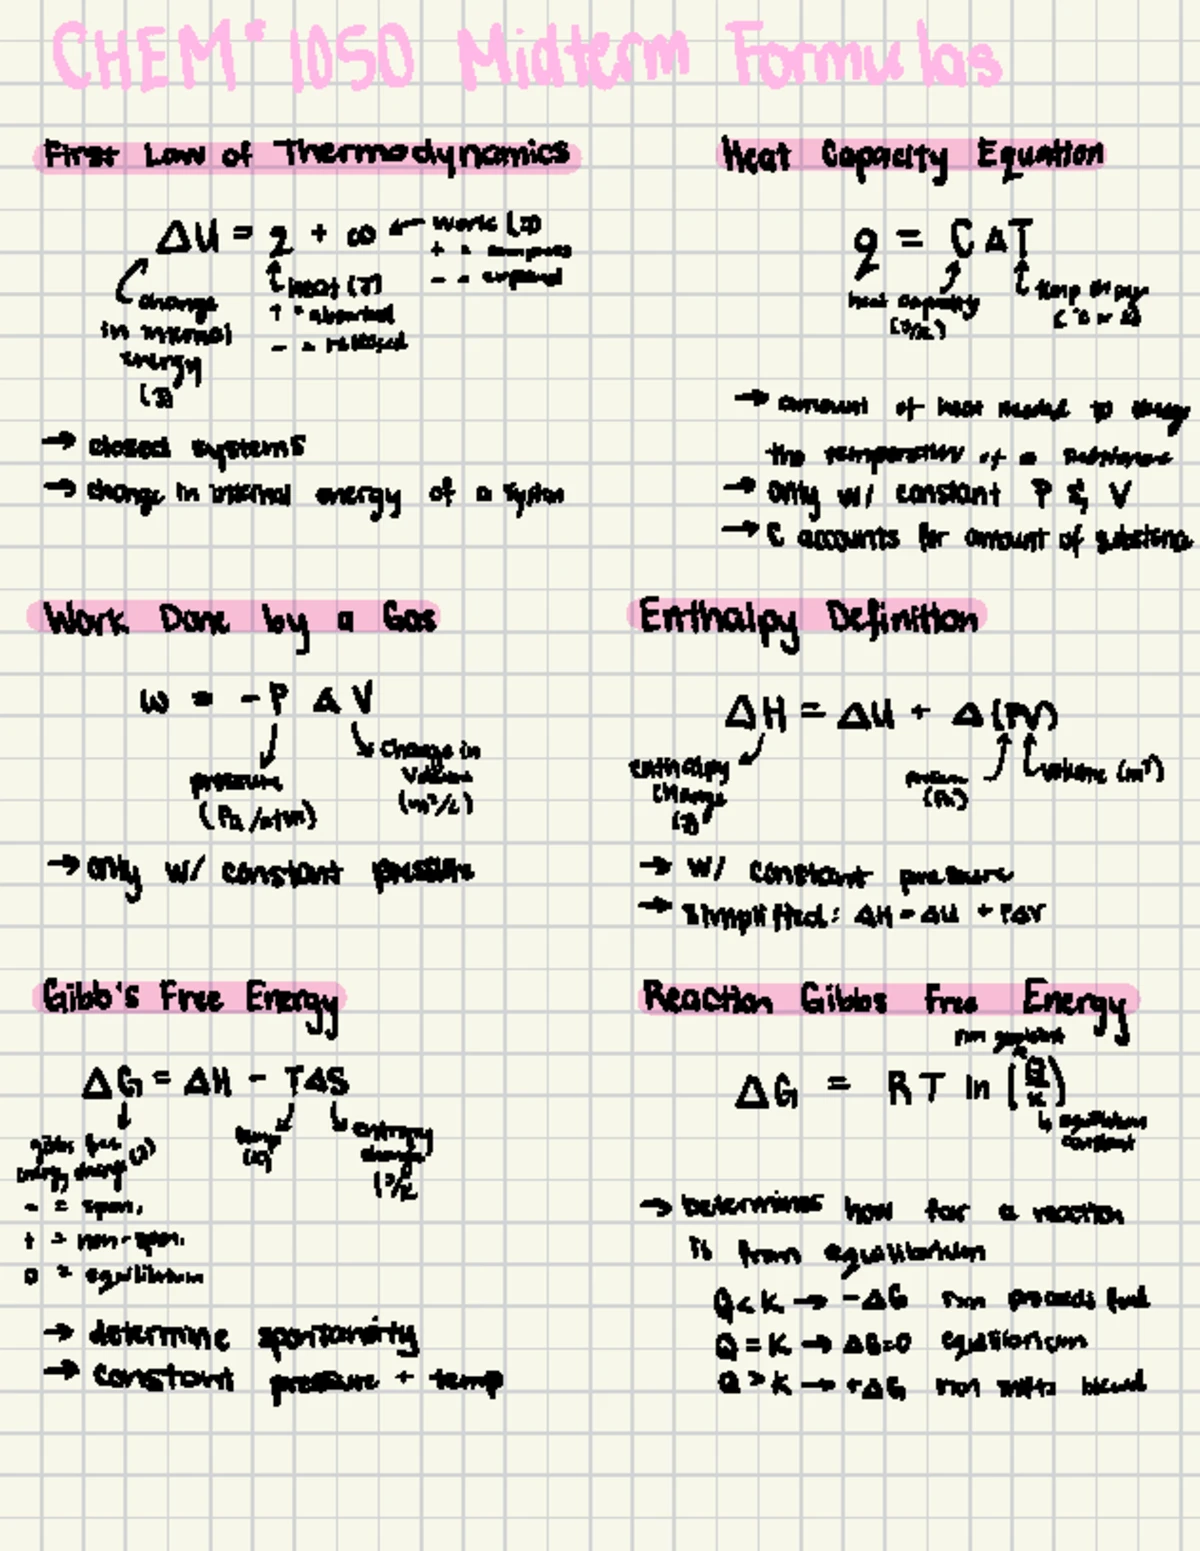 CHEM* 1050 Midterm Formulas
First Law of Thermodynamics
ΔU = q + ω ← work (J)
+ = compress
- = expand
heat (J)
+ = absorbed
- = released
change
in internal
energy
(J)
→ closed systems
→ change in internal energy of a system
Heat Capacity Equation
q = C Δ T
heat capacity
(J/K)
temp change
→ amount of heat needed to change
the temperature of a substance
→ only w/ constant P & V
→ C accounts for amount of substance
Work Done by a Gas
ω = - P Δ V
pressure
(Pa/atm)
change in
volume
(m³/L)
→ only w/ constant pressure
Enthalpy Definition
ΔH = ΔU + Δ(PV)
enthalpy
change
(J)
pressure
(Pa)
volume (m³)
→ w/ constant pressure
→ simplified: ΔH = ΔU + PΔV
Gibb's Free Energy
ΔG = ΔH - TΔS
gibbs free
energy change (J)
- = spon.
+ = non-spon.
0 = equilibrium
temp
(K)
entropy
change
(J/K
→ determine spontaneity
→ constant pressure + temp
Reaction Gibbs Free Energy
rxn quotient
ΔG = RT ln (Q/K)
equilibrium
constant
→ Determines how far a reaction
is from equilibrium
Q < K → -ΔG rxn proceeds fwd
Q = K → ΔG=0 equilibrium
Q > K → +ΔG rxn shifts bkwd